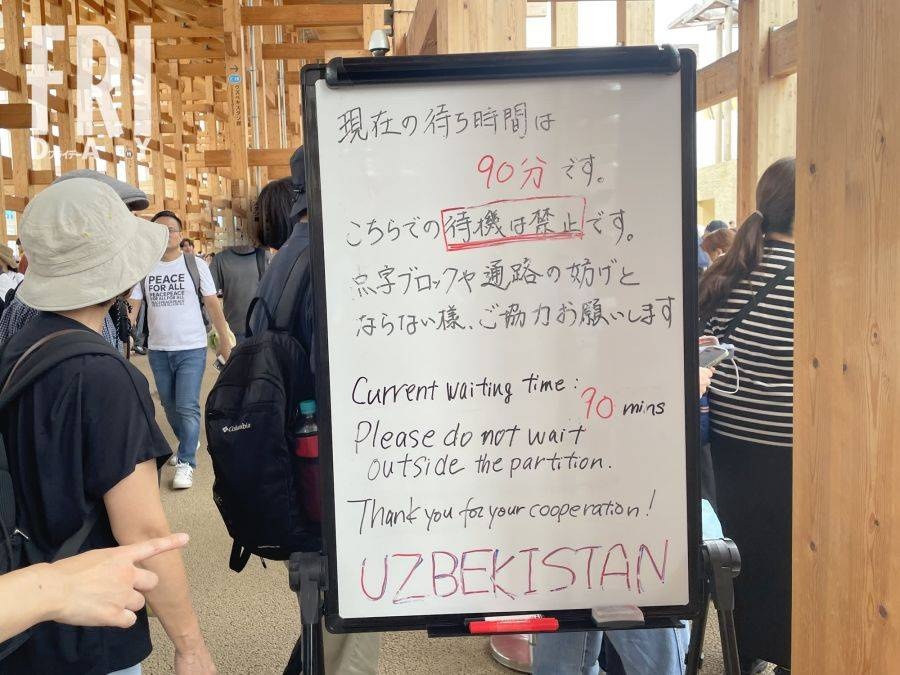 FRI
DAY
フライデー
現在の待ち時間は
90分です。
こちらでの待機は禁止です。
点字ブロックや通路の妨げと
ならない様、ご協力お願いします
Current waiting time :
90 mins
Please do not wait
outside the partition.
Thank you for your cooperation!
UZBEKISTAN
PEACE
FOR ALL
Columbia